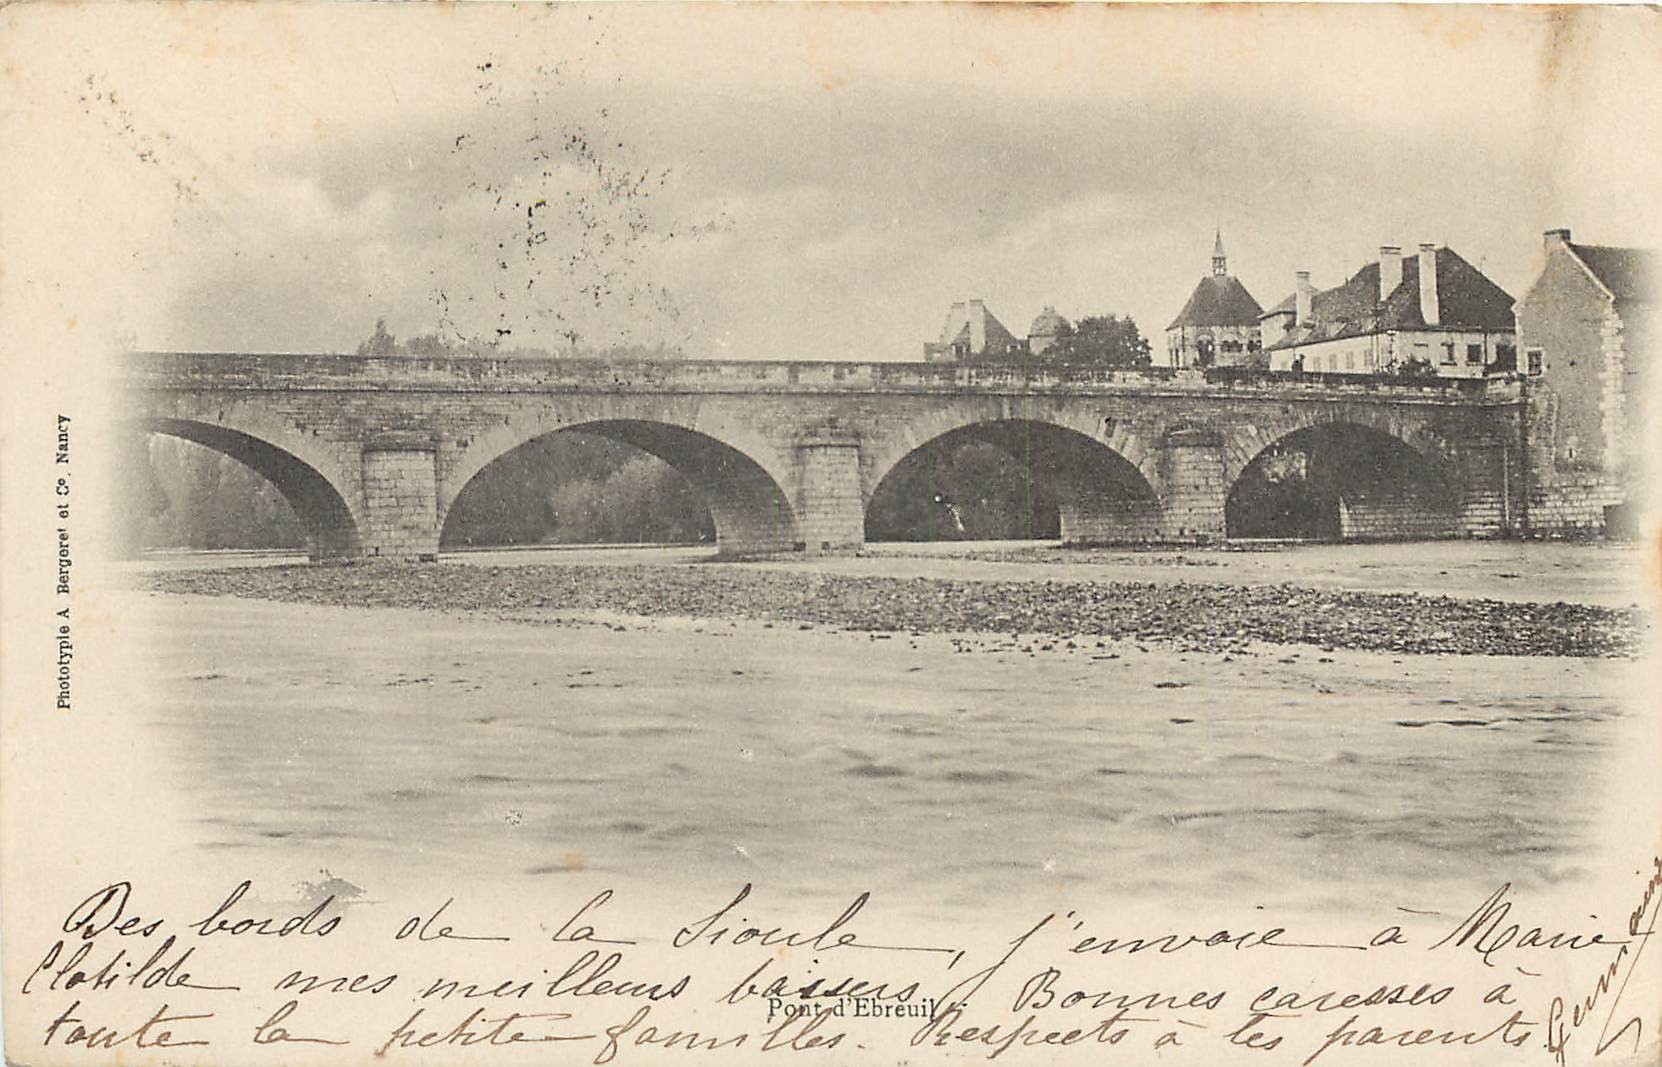 Phototypie A Bergeret et Cie. Nancy
Des bords de la Sioule, j'envoie à Marie
Clotilde mes meilleurs baisers. Bonnes caresses à
Pont d'Ebreuil
toute la petite familles. Respects à tes parents.
Germaine